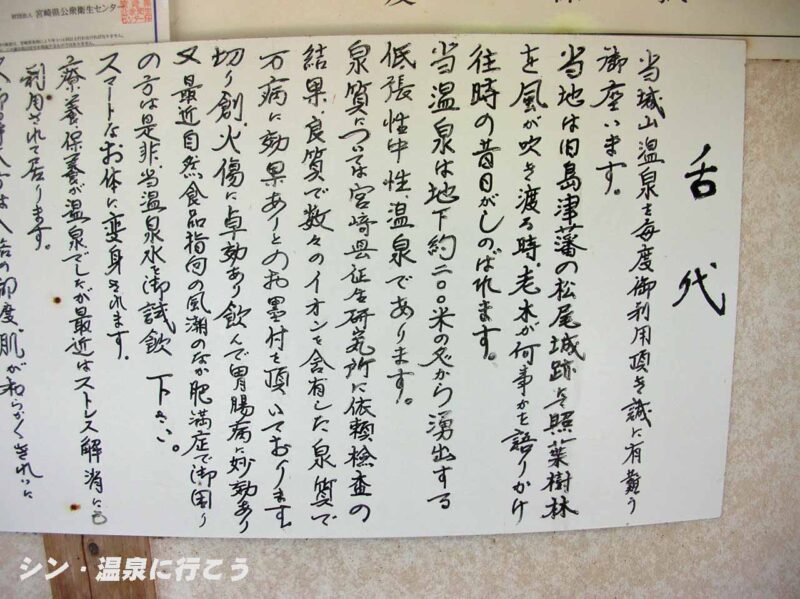 財団法人 宮崎県公衆衛生センター
舌代
当城山温泉を毎度御利用頂き誠に有難う
御座います。
当地は旧島津藩の松尾城跡で照葉樹林
を風が吹き渡る時、老木が何事かを語りかけ
往時の昔日がしのばれます。
当温泉は地下約二〇〇米の処から湧出する
低張性中性温泉であります。
泉質については宮崎県衛生研究所に依頼検査の
結果、良質で数々のイオンを含有した泉質で
万病に効果ありとのお墨付を頂いております。
切り創、火傷に卓効あり飲んで胃腸病に妙効あり
又最近自然食品指向の風潮のなか肥満症で御困り
の方は是非、当温泉水を御試飲 下さい。
スマートなお体に変身されます。
療養、保養が温泉でしたが最近はストレス解消にも
利用されて居ります。
肌が和らかくきれいに
シン・温泉に行こう